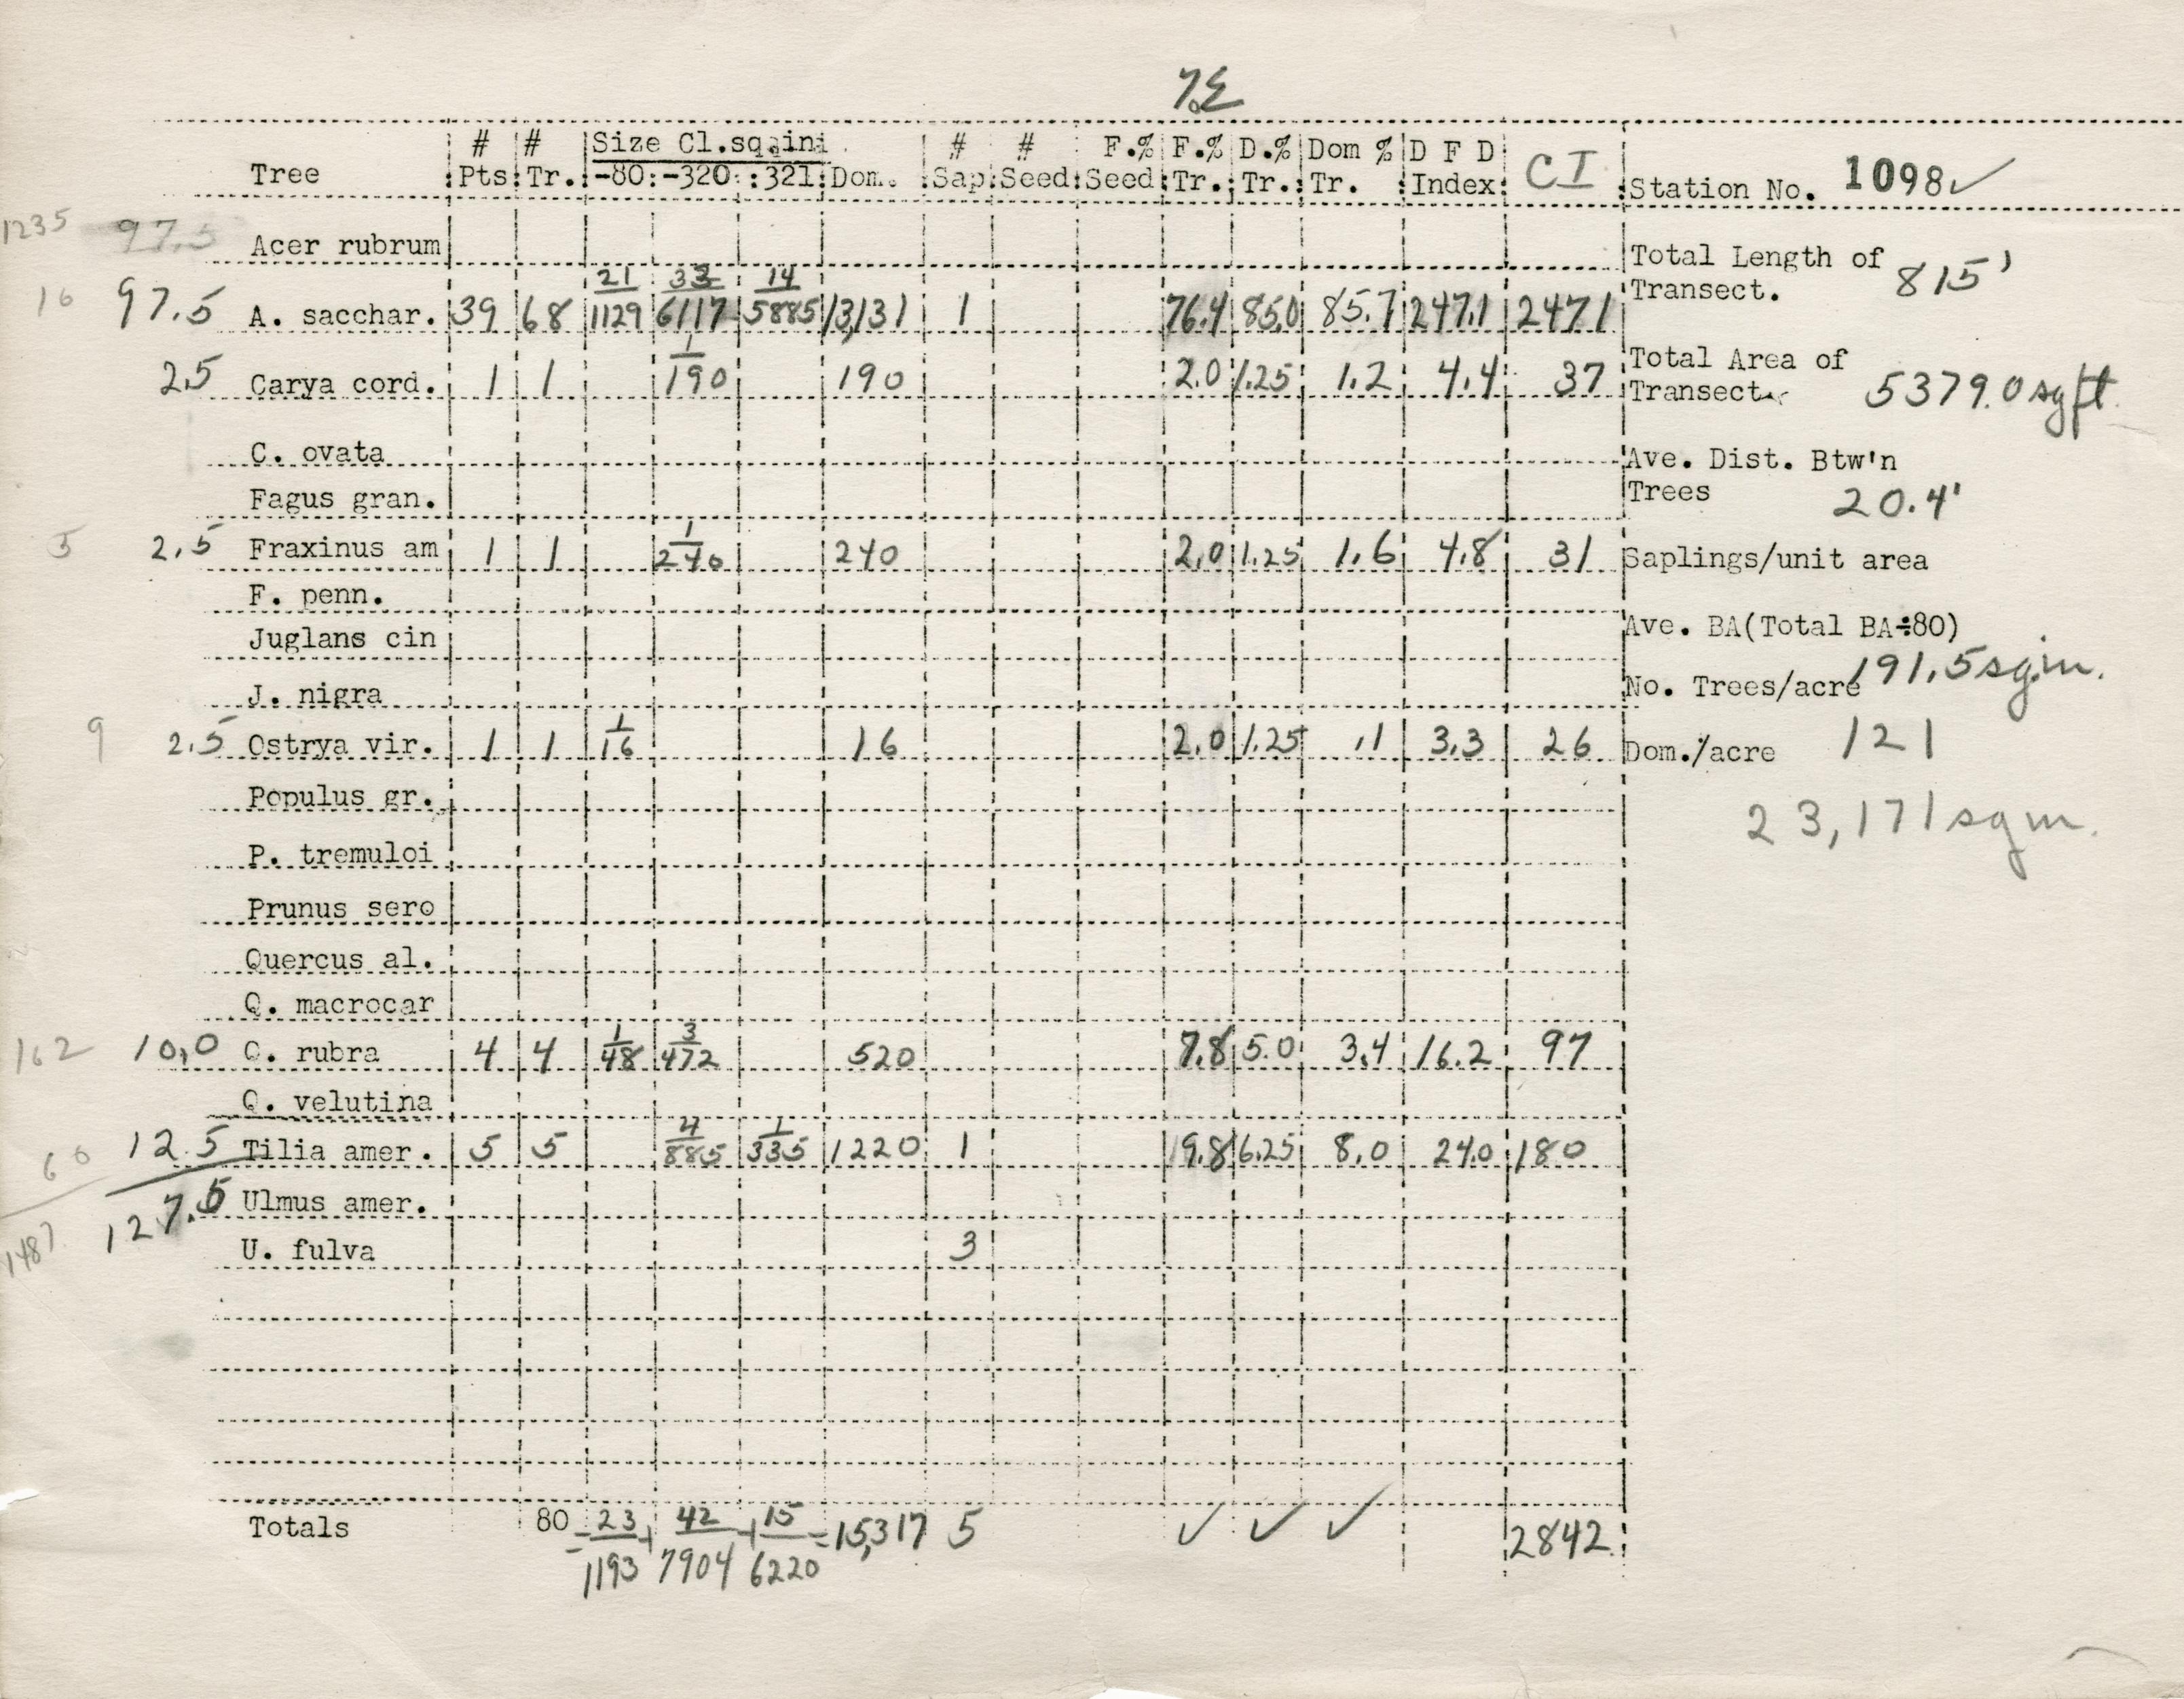 7.
# # Size Cl.sq.in # # F.% F.% D.% Dom % D F D CI
Tree Pts Tr. -80 -320 321 Dom. Sap Seed Seed Tr. Tr. Tr. Index Station No. 1098✓
1235 97.5 Acer rubrum
Total Length of Transect. 815'
21 33 14
16 97.5 A. sacchar. 39 68 1129 6117 5885 13,131 1 76.4 85.0 85.7 247.1 2471
1
2.5 Carya cord. 1 1 190 190 2.0 1.25 1.2 4.4 37
Total Area of
Transect. 5379.0 sq ft.
C. ovata
Ave. Dist. Btw'n
Trees 20.4'
Fagus gran.
1
5 2.5 Fraxinus am 1 1 240 240 2.0 1.25 1.6 4.8 31 Saplings/unit area
F. penn.
Juglans cin
Ave. BA(Total BA÷80)
191.5 sq.in.
J. nigra
No. Trees/acre
121
1
9 2.5 Ostrya vir. 1 1 16 16 2.0 1.25 .1 3.3 26 Dom./acre
23,171 sq in.
Populus gr.
P. tremuloi
Prunus sero
Quercus al.
Q. macrocar
1 3
162 10.0 Q. rubra 4 4 48 472 520 7.8 5.0 3.4 16.2 97
Q. velutina
4 1
60 12.5 Tilia amer. 5 5 885 335 1220 1 9.8 6.25 8.0 24.0 180
127.5 Ulmus amer.
1487 U. fulva 3
Totals 80 = 23 + 42 + 15 = 15,317 5 ✓ ✓ ✓ 2842
1193 7904 6220